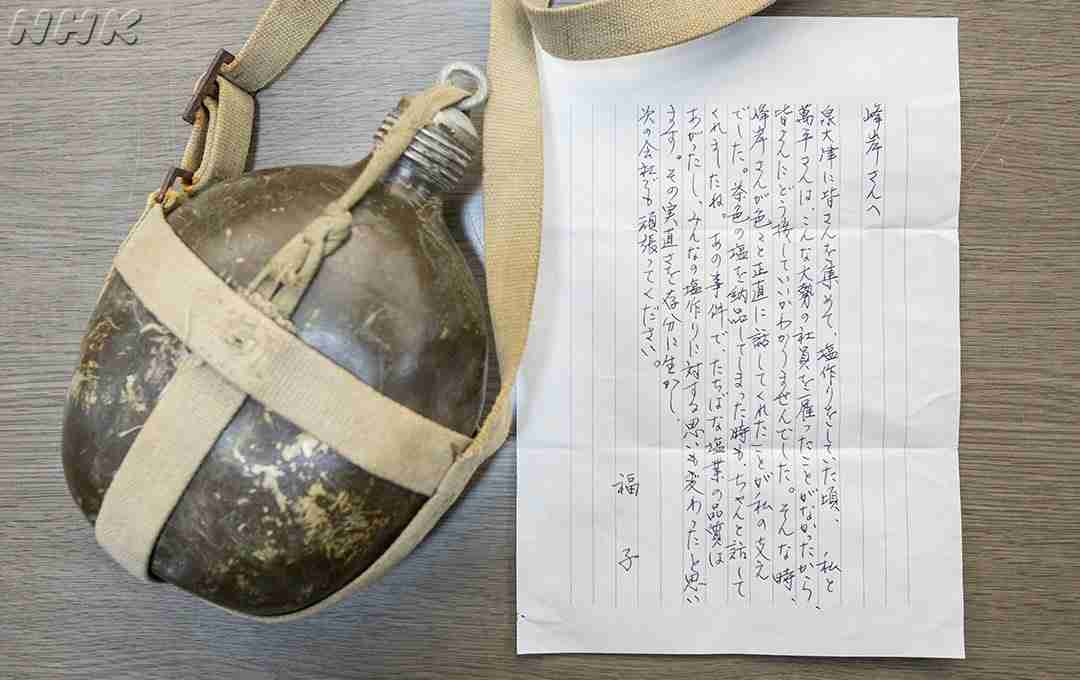 NHK
峰岸さんへ
泉大津に皆さんを集めて、塩作りをしていた頃、私と
萬平さんは、こんな大勢の社員を雇ったことがなかったから、
皆さんにどう接していいかわかりませんでした。そんな時、
峰岸さんが色々と正直に話してくれたことが私の支え
でした。茶色の塩を納品してしまった時も、ちゃんと話して
くれましたね。あの事件で、たちばな塩業の品質は
あがったし、みんなの塩作りに対する思いも変わったと思い
ます。その実直さを存分に生かし、
次の会社でも頑張ってください。
福子